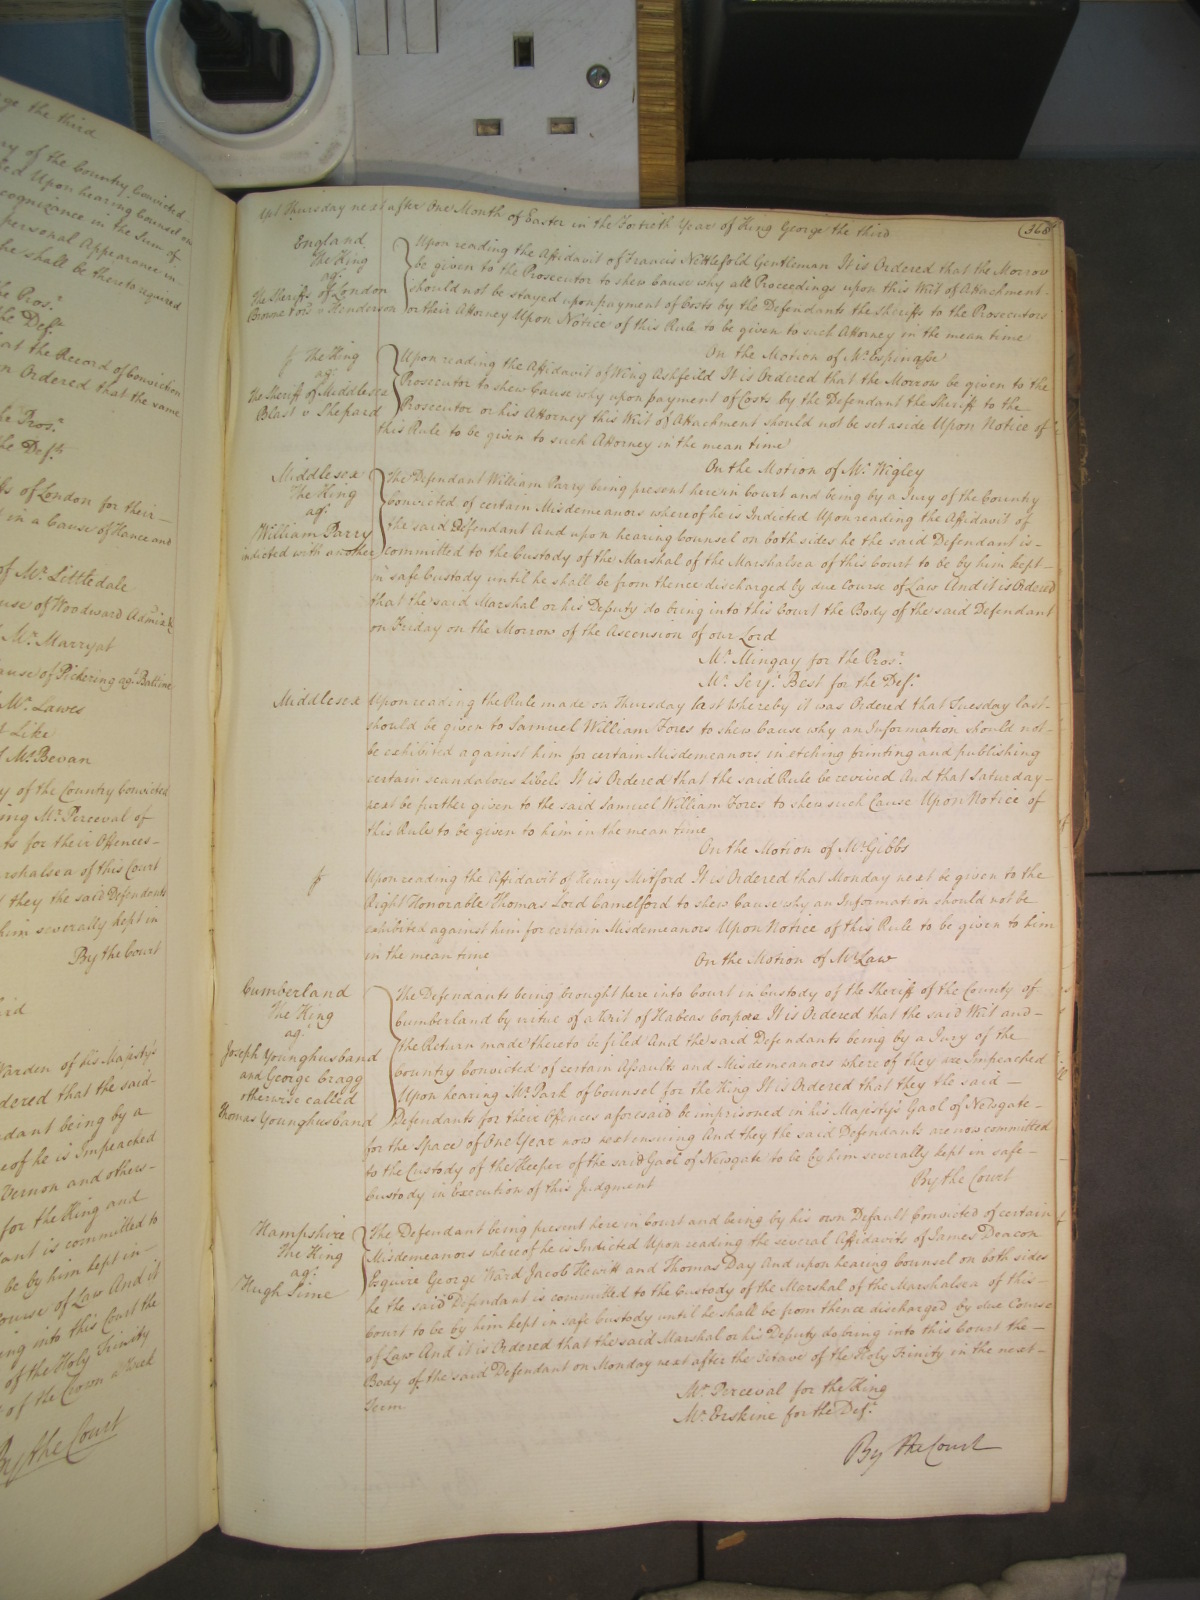 ge the third
ry of the Country Convicted
ed Upon hearing Counsel on
cognizance in the Sum of
personal Appearance in
he shall be thereto required
he Pros.r
he Def.t
at the Record of Conviction
n Ordered that the same
he Pros.r
he Def.t
s of London for their
in a Cause of Hance and
of Mr. Littledale
use of Woodward Admix
Mr. Marryat
ause of Pickering ag.t Baltime
Mr. Lawes
Like
Mr. Bevan
y of the Country Convicted
ing Mr. Perceval of
ts for their Offences
rshalsea of this Court
they the said Defendants
him severally kept in
By the Court
Warden of his Majestys
dered that the said
dant being by a
eof he is Impeached
Vernon and others
for the King and
ant is committed to
be by him kept in
ourse of Law And it
ing into this Court the
of the Holy Trinity
of the Crown a Week
By the Court
Yet Thursday next after One Month of Easter in the Fortieth Year of King George the third
368
England
The King
ag.t
The Sheriffs of London
Browne & ors v Henderson
Upon reading the Affidavit of Francis Nettlefold Gentleman It is Ordered that the Morrow
be given to the Prosecutor to shew Cause why all Proceedings upon this Writ of Attachment
should not be stayed upon payment of Costs by the Defendants the Sheriffs to the Prosecutors
or their Attorney Upon Notice of this Rule to be given to such Attorney in the mean time
On the Motion of Mr. Espinasse
The King
ag.t
The Sheriff of Middlesex
Blast v Shepard
Upon reading the Affidavit of Wing Ashfeild It is Ordered that the Morrow be given to the
Prosecutor to shew Cause why upon payment of Costs by the Defendant the Sheriff to the
Prosecutor or his Attorney this Writ of Attachment should not be set aside Upon Notice of
this Rule to be given to such Attorney in the mean time
On the Motion of Mr. Wigley
Middlesex
The King
ag.t
William Parry
indicted with another
The Defendant William Parry being present here in Court and being by a Jury of the Country
Convicted of certain Misdemeanors whereof he is Indicted Upon reading the Affidavit of
the said Defendant And upon hearing Counsel on both sides he the said Defendant is
committed to the Custody of the Marshal of the Marshalsea of this Court to be by him kept
in safe Custody until he shall be from thence discharged by due Course of Law And it is Ordered
that the said Marshal or his Deputy do bring into this Court the Body of the said Defendant
on Friday on the Morrow of the Ascension of our Lord
Mr. Mingay for the Pros.r
Mr. Serj.t Best for the Def.t
Middlesex
Upon reading the Rule made on Thursday last whereby it was Ordered that Tuesday last
should be given to Samuel William Fores to shew Cause why an Information should not
be exhibited against him for certain Misdemeanors in etching printing and publishing
certain scandalous Libels It is Ordered that the said Rule be revived And that Saturday
next be further given to the said Samuel William Fores to shew such Cause Upon Notice of
this Rule to be given to him in the mean time
On the Motion of Mr. Gibbs
Upon reading the Affidavit of Henry Mutford It is Ordered that Monday next be given to the
Right Honorable Thomas Lord Camelford to shew Cause why an Information should not be
exhibited against him for certain Misdemeanors Upon Notice of this Rule to be given to him
in the mean time
On the Motion of Mr. Law
Cumberland
The King
ag.t
Joseph Younghusband
and George Cragg
otherwise called
Thomas Younghusband
The Defendants being brought here into Court in Custody of the Sheriff of the County of
Cumberland by virtue of a Writ of Habeas Corpora It is Ordered that the said Writ and
the Return made thereto be filed And the said Defendants being by a Jury of the
Country Convicted of certain Assaults and Misdemeanors whereof they are Impeached
Upon hearing Mr. Park of Counsel for the King It is Ordered that they the said
Defendants for their Offences aforesaid be imprisoned in his Majestys Gaol of Newgate
for the Space of One Year now next ensuing And they the said Defendants are now committed
to the Custody of the Keeper of the said Gaol of Newgate to be by him severally kept in safe
Custody in Execution of this Judgment
By the Court
Hampshire
The King
ag.t
Hugh Sime
The Defendant being present here in Court and being by his own Default Convicted of certain
Misdemeanors whereof he is Indicted Upon reading the several Affidavits of James Deacon
Esquire George Ward Jacob Hewitt and Thomas Day And upon hearing Counsel on both sides
he the said Defendant is committed to the Custody of the Marshal of the Marshalsea of this
Court to be by him kept in safe Custody until he shall be from thence discharged by due Course
of Law And it is Ordered that the said Marshal or his Deputy do bring into this Court the
Body of the said Defendant on Monday next after the Octave of the Holy Trinity in the next
Term
Mr. Perceval for the King
Mr. Erskine for the Def.t
By the Court